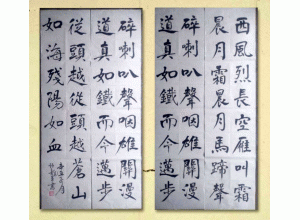 西風烈長空雁叫霜
晨月霜晨月馬蹄聲
碎喇叭聲咽雄關漫
道真如鐵而今邁步
碎喇叭聲咽雄關漫
道真如鐵而今邁步
從頭越從頭越蒼山
如海殘陽如血